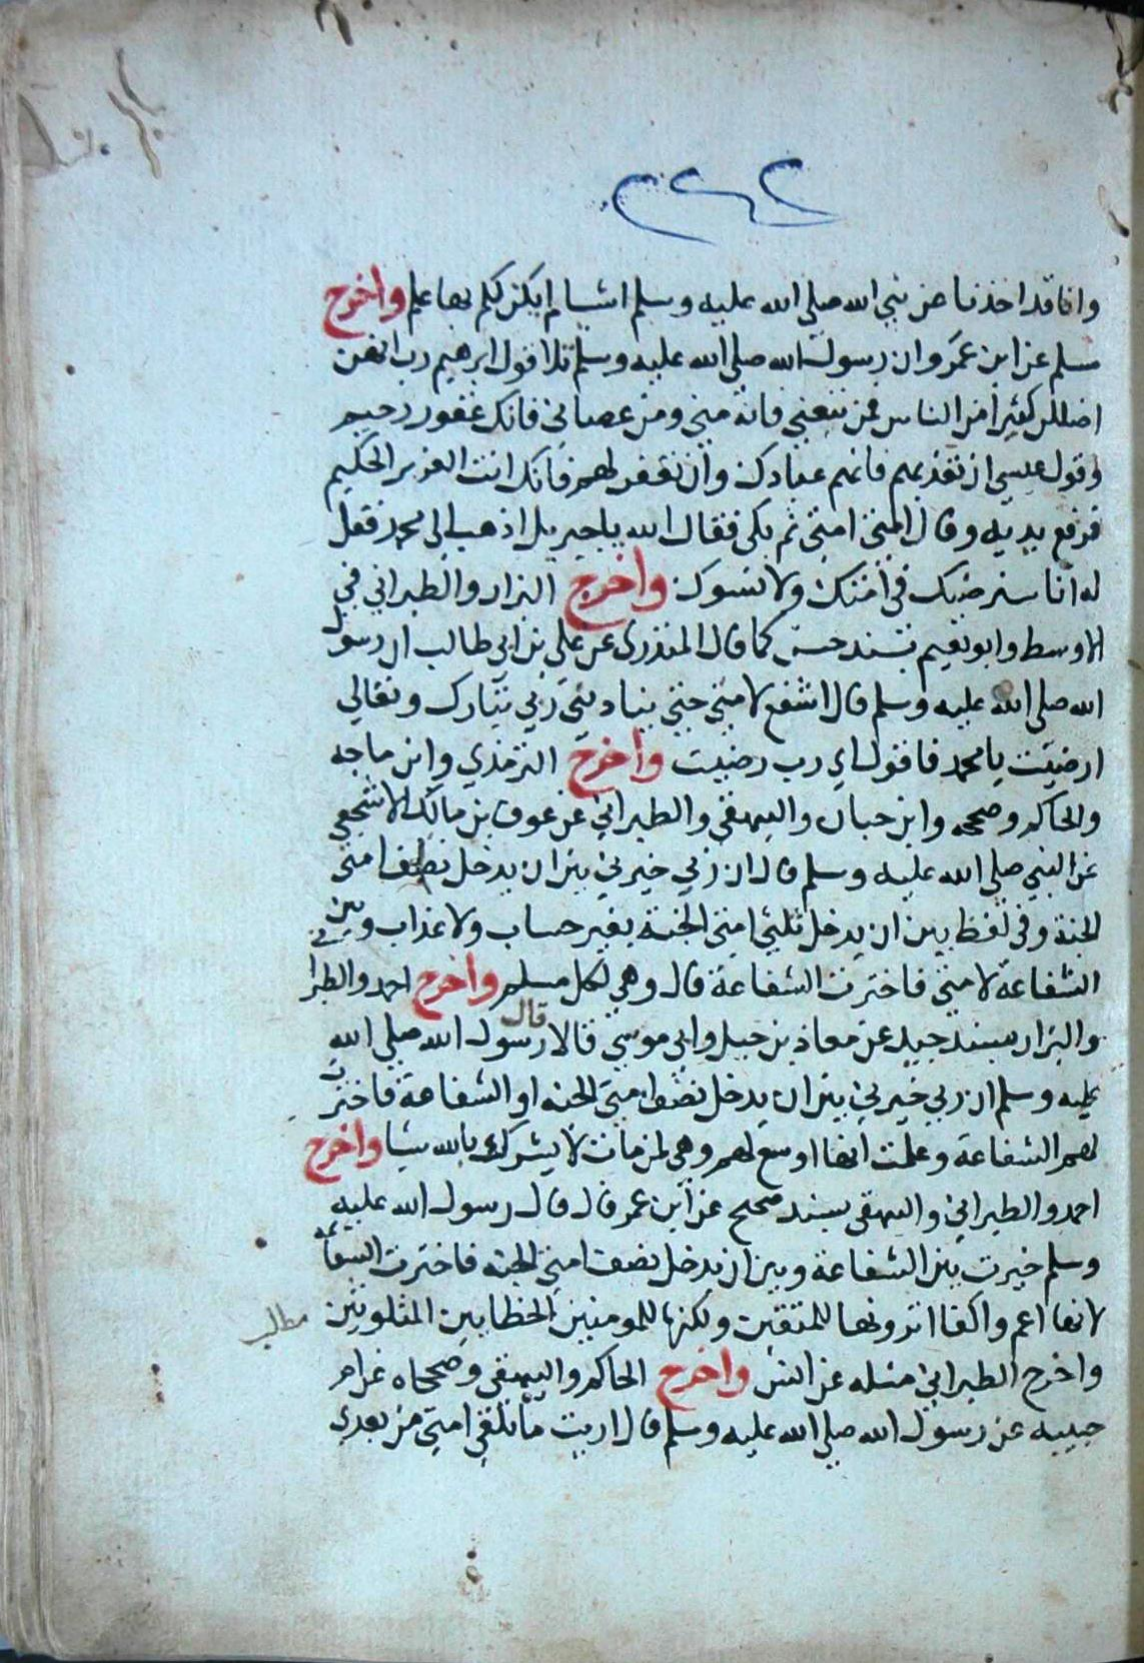 وانا قد اخذنا عن نبي الله صلي الله عليه وسلم اشيا لم يكن لكم بها علم واخرج
مسلم عن ابن عمرو ان رسول الله صلي الله عليه وسلم تلا قول ابرهيم رب انهن
اضللن كثيرا من الناس فمن تبعني فانه مني ومن عصاني فانك غفور رحيم
وقول عيسي ان تعذبهم فانهم عبادك وان تغفر لهم فانك انت العزيز الحكيم
فرفع يديه وقال امتي امتي ثم بكي فقال الله يا جبريل اذهب الي محمد فقل
له انا سنرضيك في امتك ولا نسوك واخرج البزار والطبراني في
الاوسط وابو نعيم بسند حسن كما قال المنذري عن علي بن ابي طالب ان رسول
الله صلي الله عليه وسلم قال اشفع لامتي حتي يناديني ربي تبارك وتعالي
ارضيت يا محمد فاقول اي رب رضيت واخرج الترمذي وابن ماجه
والحاكم وصححه وابن حبان والبيهقي والطبراني عن عوف بن مالك الاشجعي
عن النبي صلي الله عليه وسلم قال ان ربي خيرني بين ان يدخل نصف امتي
الجنة وفي لفظ بين ان يدخل ثلثي امتي الجنة بغير حساب ولا عذاب وبين
الشفاعة لامتي فاخترت الشفاعة قال وهي لكل مسلم واخرج احمد والطبرا
والبزار بسند جيد عن معاذ بن جبل وابي موسي قالا قال رسول الله صلي الله
عليه وسلم ان ربي خيرني بين ان يدخل نصف امتي الجنه او الشفاعة فاخترت
لهم الشفاعة وعلمت انها اوسع لهم وهي لمن مات لا يشرك بالله شيا واخرج
احمد والطبراني والبيهقي بسند صحيح عن ابن عمر قال قال رسول الله عليه
وسلم خيرت بين الشفاعة وبين ان يدخل نصف امتي الجنه فاخترت الشفاعه
لانها اعم واكفا اترونها للمتقين ولكنها للمومنين الخطايين المتلوثين
مطالب
واخرج الطبراني مثله عن انس واخرج الحاكم والبيهقي وصححاه عن ام
حبيبه عن رسول الله صلي الله عليه وسلم قال اريت ما تلقي امتي من بعدي